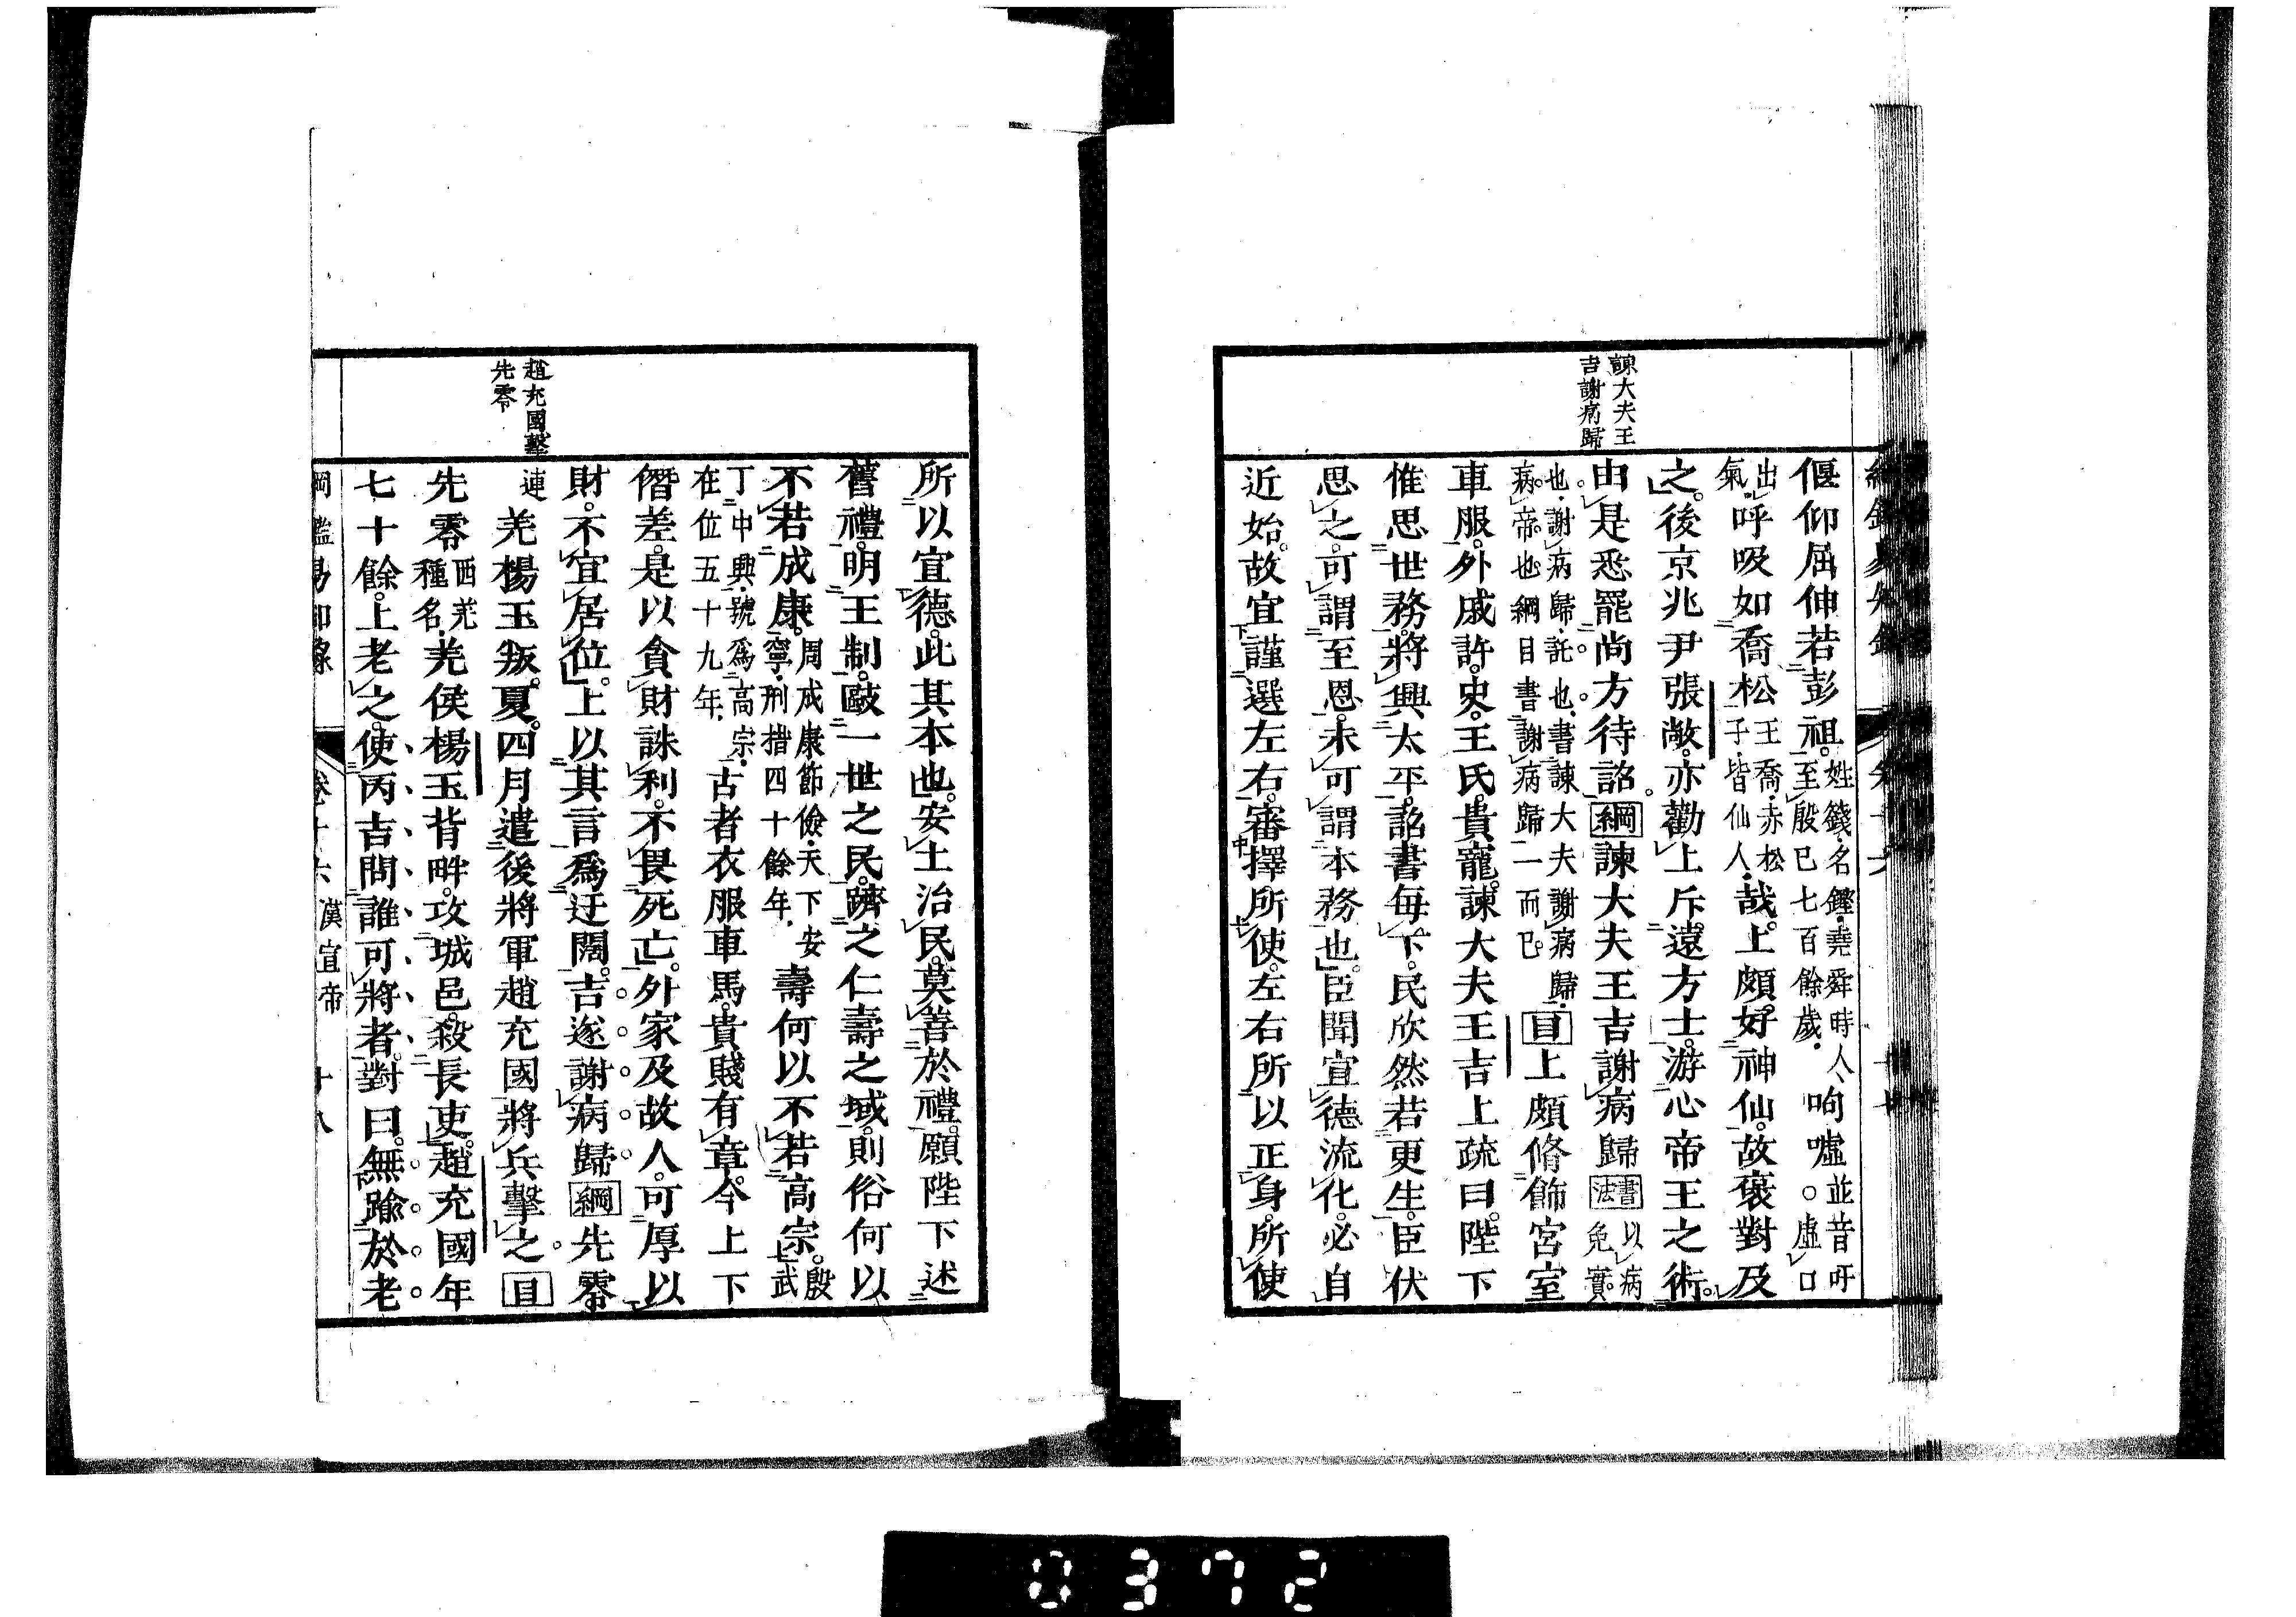 諫大夫王
吉謝病歸
偃仰屈伸若彭祖。姓籛名鏗堯舜時人、至殷已七百餘歲。呴噓並音吁○虛口
出氣。呼吸如喬松王喬赤松子皆仙人。哉。上頗好神仙。故褒對及
之。後京兆尹張敞。亦勸上斥遠方士。游心帝王之術。
由是悉罷尚方待詔。綱諫大夫王吉謝病歸書法以病免實
病。也。謝病歸。託也。書諫大夫謝病歸。帝也綱目書謝病歸一而已。目上頗脩飾宮室
車服。外戚許。史。王氏。貴寵。諫大夫王吉上疏曰。陛下
惟思世務。將興太平。詔書每下。民欣然若更生。臣伏
思之。可謂至恩。未可謂本務也。臣聞宣德流化。必自
近始。故宜謹選左右。審擇所使。左右所以正身。所使
趙充國擊
先零
所以宣德。此其本也。安上治民。莫善於禮。願陛下述
舊禮。明王制。敺一世之民。躋之仁壽之域。則俗何以
不若成康。周成康節儉。天下安寧。刑措四十餘年。壽何以不若高宗。殷武
丁中興。號爲高宗。在位五十九年。古者衣服車馬。貴賤有章。今上下
僭差。是以貪財誅利。不畏死亡。外家及故人。可厚以
財。不宜居位。上以其言爲迂闊。吉遂謝病歸。綱先零
連羌楊玉叛。夏。四月遣後將軍趙充國將兵擊之。目
先零西羌種名。羌侯楊玉背畔。攻城邑。殺長吏。趙充國年
七十餘。上老之。使丙吉問誰可將者。對曰。無踰於老
卷十六 漢宣帝 十八
0372